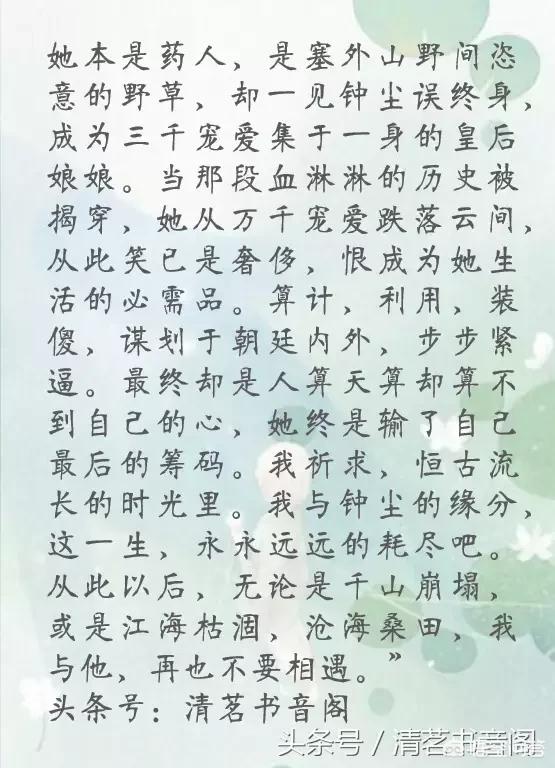 她本是药人，是塞外山野间恣
意的野草，却一见钟尘误终身，
成为三千宠爱集于一身的皇后
娘娘。当那段血淋淋的历史被
揭穿，她从万千宠爱跌落云间，
从此笑已是奢侈，恨成为她生
活的必需品。算计，利用，装
傻，谋划于朝廷内外，步步紧
逼。最终却是人算天算却算不
到自己的心，她终是输了自己
最后的筹码。我祈求，恒古流
长的时光里。我与钟尘的缘分，
这一生，永永远远的耗尽吧。
从此以后，无论是千山崩塌，
或是江海枯涸，沧海桑田，我
与他，再也不要相遇。”
头条号：清茗书音阁
头条号 / 清茗书音阁